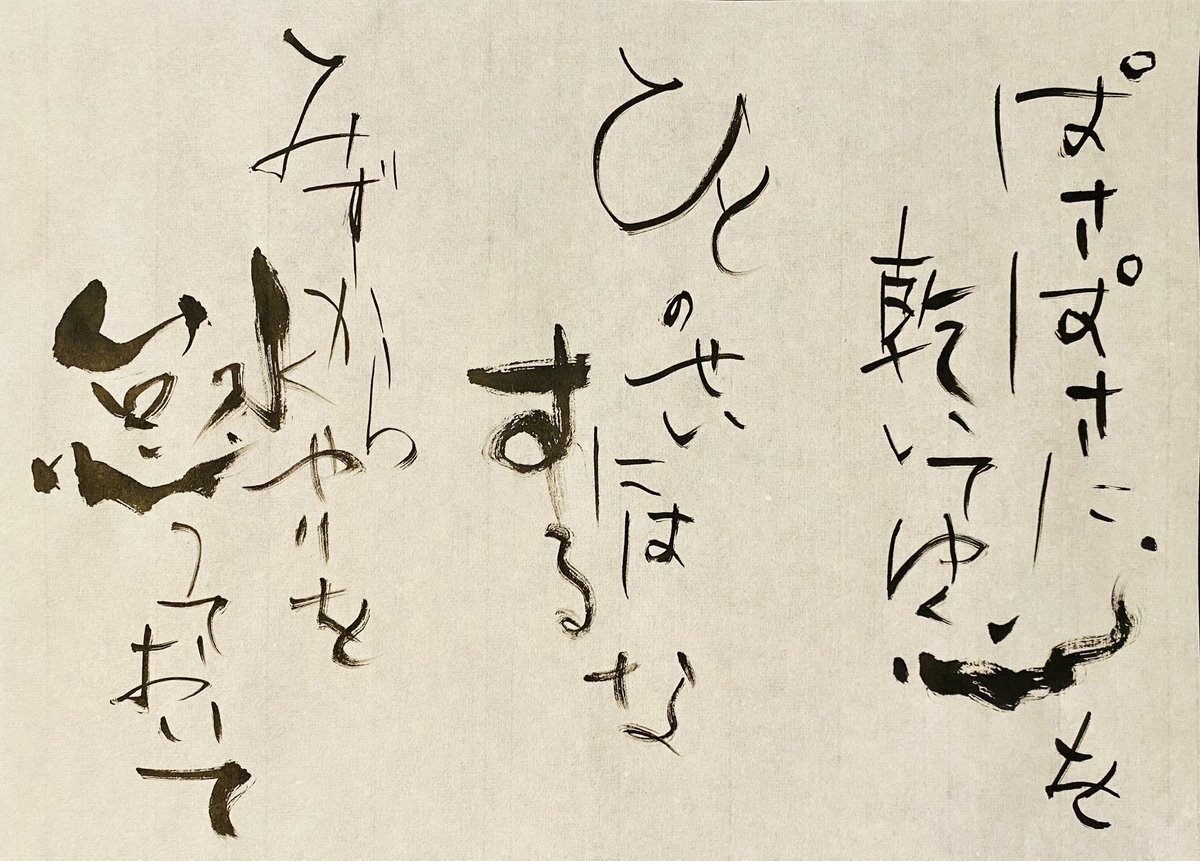 ぱさぱさに
乾いてゆく
心を
ひとのせいには
するな
みずから
水やりを
怠っておいて